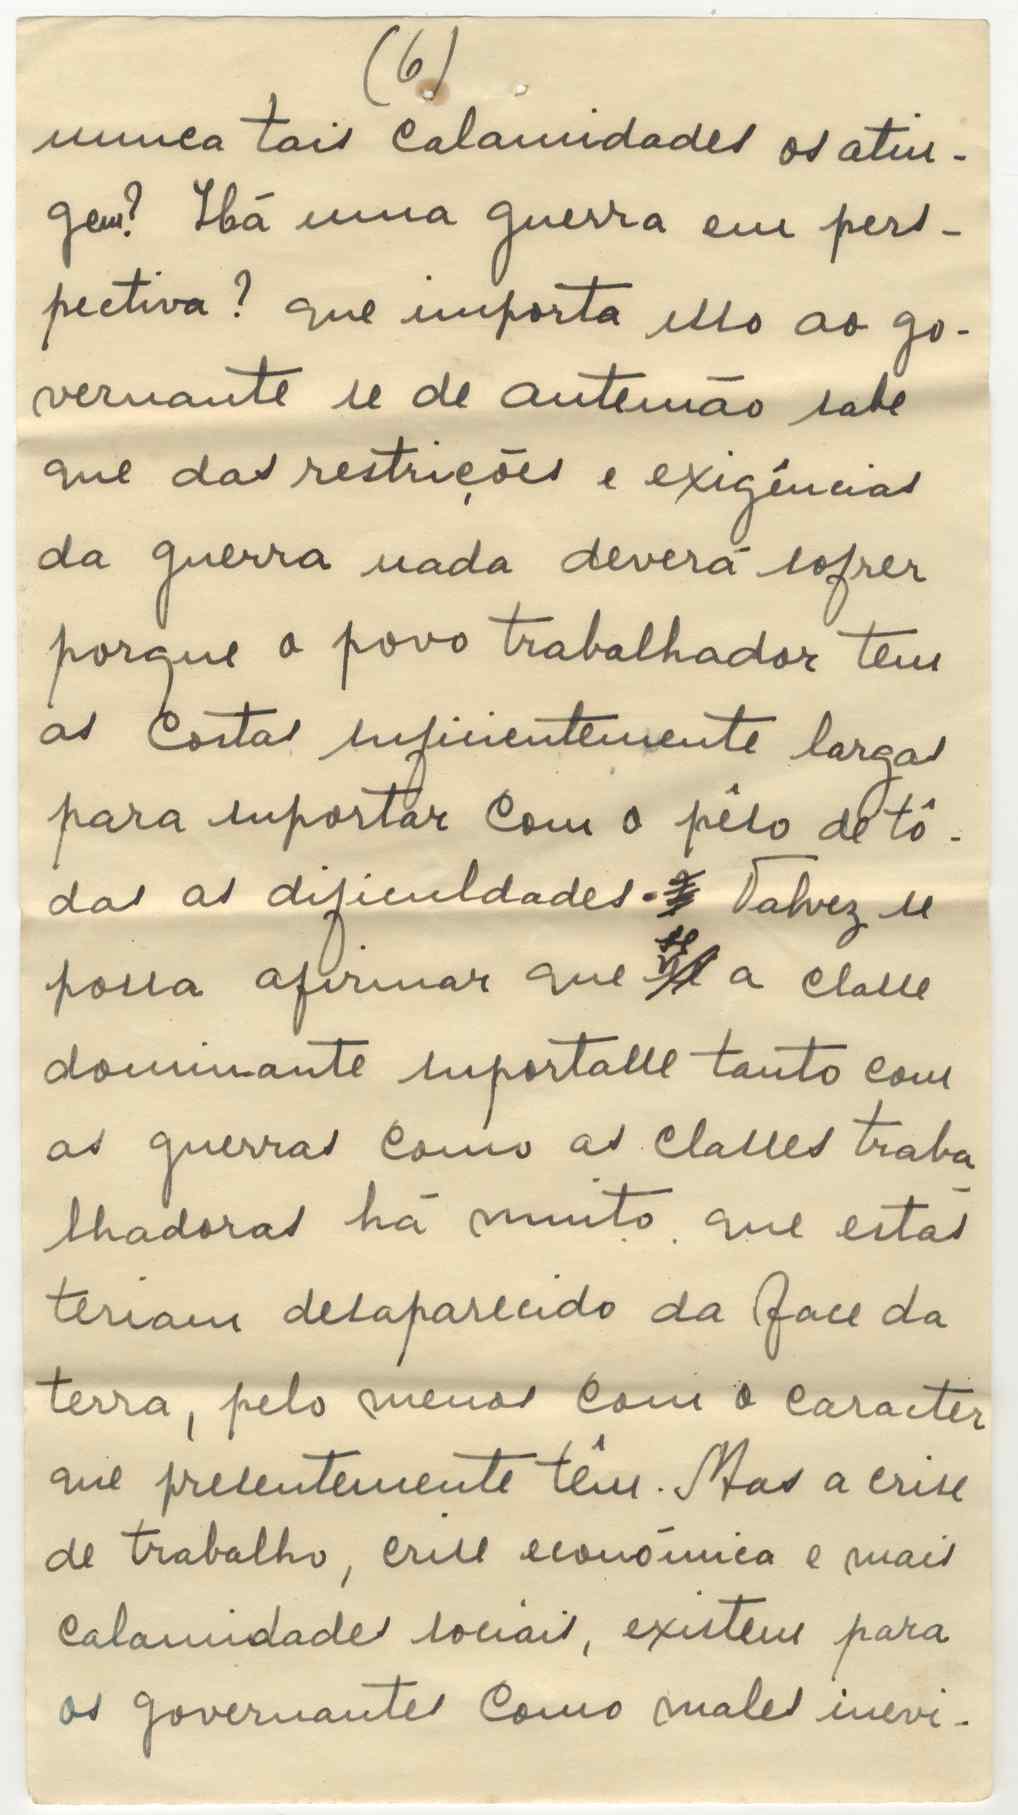 (6)
nunca tais calamidades os atin-
gem? Há uma guerra em pers-
pectiva? que importa isso ao go-
vernante se de antemão sabe
que das restrições e exigências
da guerra nada deverá sofrer
porque o povo trabalhador tem
as costas suficientemente largas
para suportar com o pêso de tô-
das as dificuldades. Talvez se
possa afirmar que se a classe
dominante suportasse tanto com
as guerras como as classes traba
lhadoras há muito que estas
teriam desaparecido da face da
terra, pelo menos com o caracter
que presentemente têm. Mas a crise
de trabalho, crise económica e mais
calamidades sociais, existem para
os governantes como males inevi-